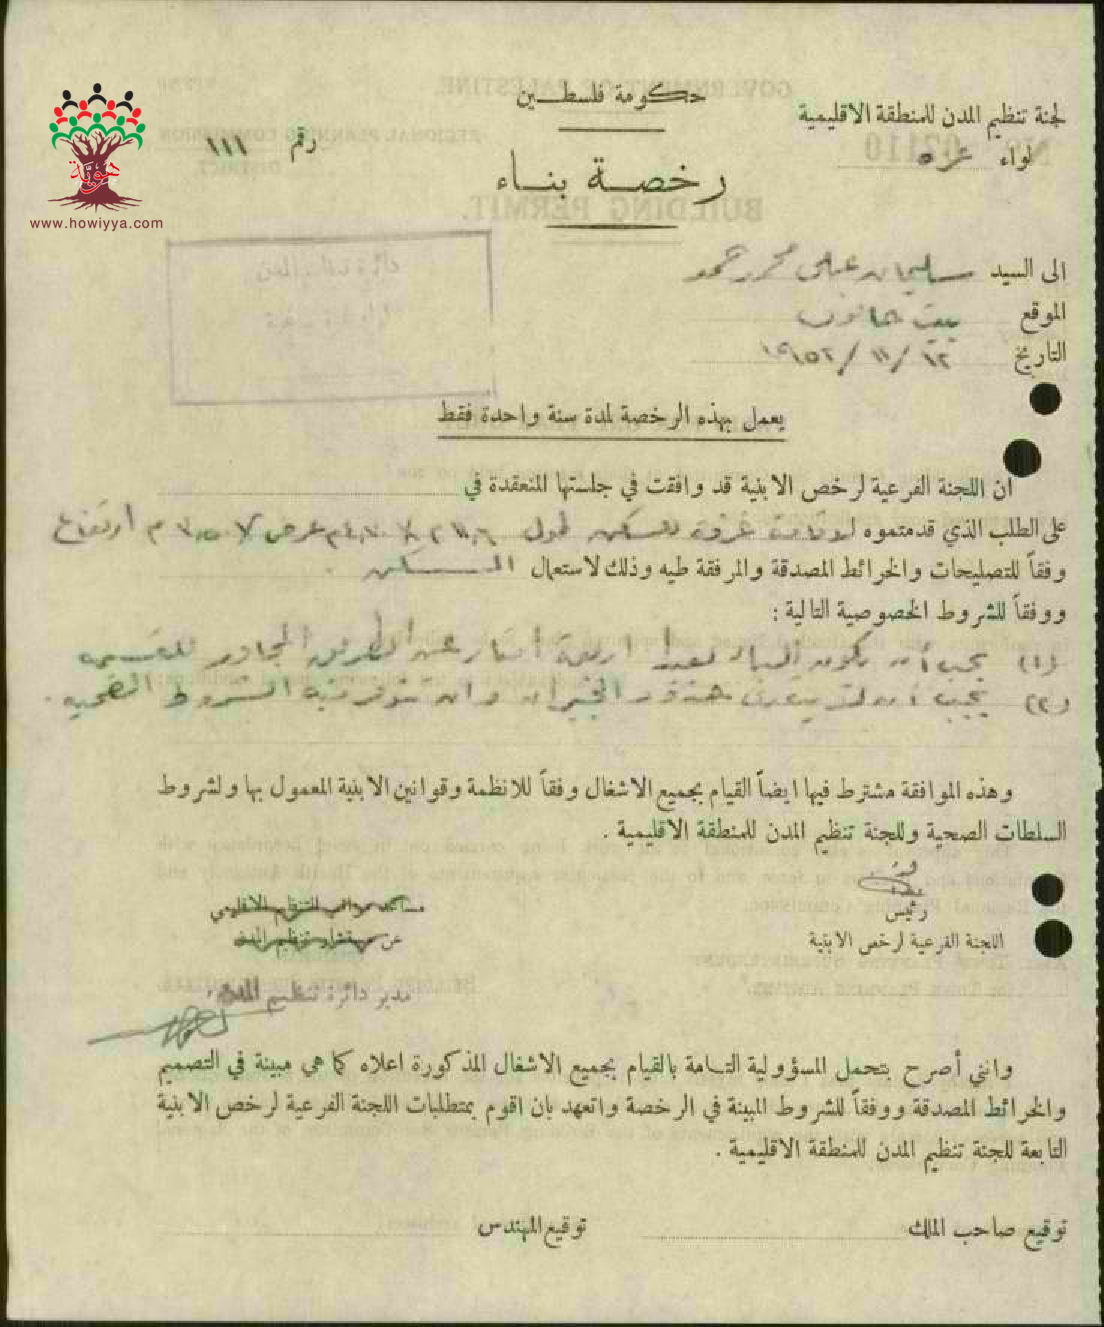 حكومة فلسطين
لجنة تنظيم المدن للمنطقة الاقليمية
لواء غزه
رقم ١١١
هوية
www.howiyya.com
رخصة بناء
الى السيد سليمان علي محمد حمد
الموقع بيت حانون
التاريخ ١٢/ ١١/ ١٩٥٢
يعمل بهذه الرخصة لمدة سنة واحدة فقط
ان اللجنة الفرعية لرخص الابنية قد وافقت في جلستها المنعقدة في
على الطلب الذي قدمتموه لاقامة غرفة للسكن طول عرض ارتفاع
وفقاً للتصليحات والخرائط المصدقة والمرفقة طيه وذلك لاستعمال السكن .
ووفقاً للشروط الخصوصية التالية :
(١) يجب أن يكون البناء بعيدا اربعة امتار عن الطريق المجاور للقسيمة
(٢) يجب أن حقوق الجيران وان تتوفر فيه الشروط الصحيه .
وهذه الموافقة مشترط فيها ايضاً القيام بجميع الاشغال وفقاً للانظمة وقوانين الابنية المعمول بها ولشروط
السلطات الصحية وللجنة تنظيم المدن للمنطقة الاقليمية .
رئيس
اللجنة الفرعية لرخص الابنية
عن مستشار تنظيم المدن
مدير دائرة تنظيم المدن
وانني أصرح بتحمل المسؤولية التامة بالقيام بجميع الاشغال المذكورة اعلاه كما هي مبينة في التصميم
والخرائط المصدقة ووفقاً للشروط المبينة في الرخصة واتعهد بان اقوم بمتطلبات اللجنة الفرعية لرخص الابنية
التابعة للجنة تنظيم المدن للمنطقة الاقليمية .
توقيع صاحب الملك
توقيع المهندس